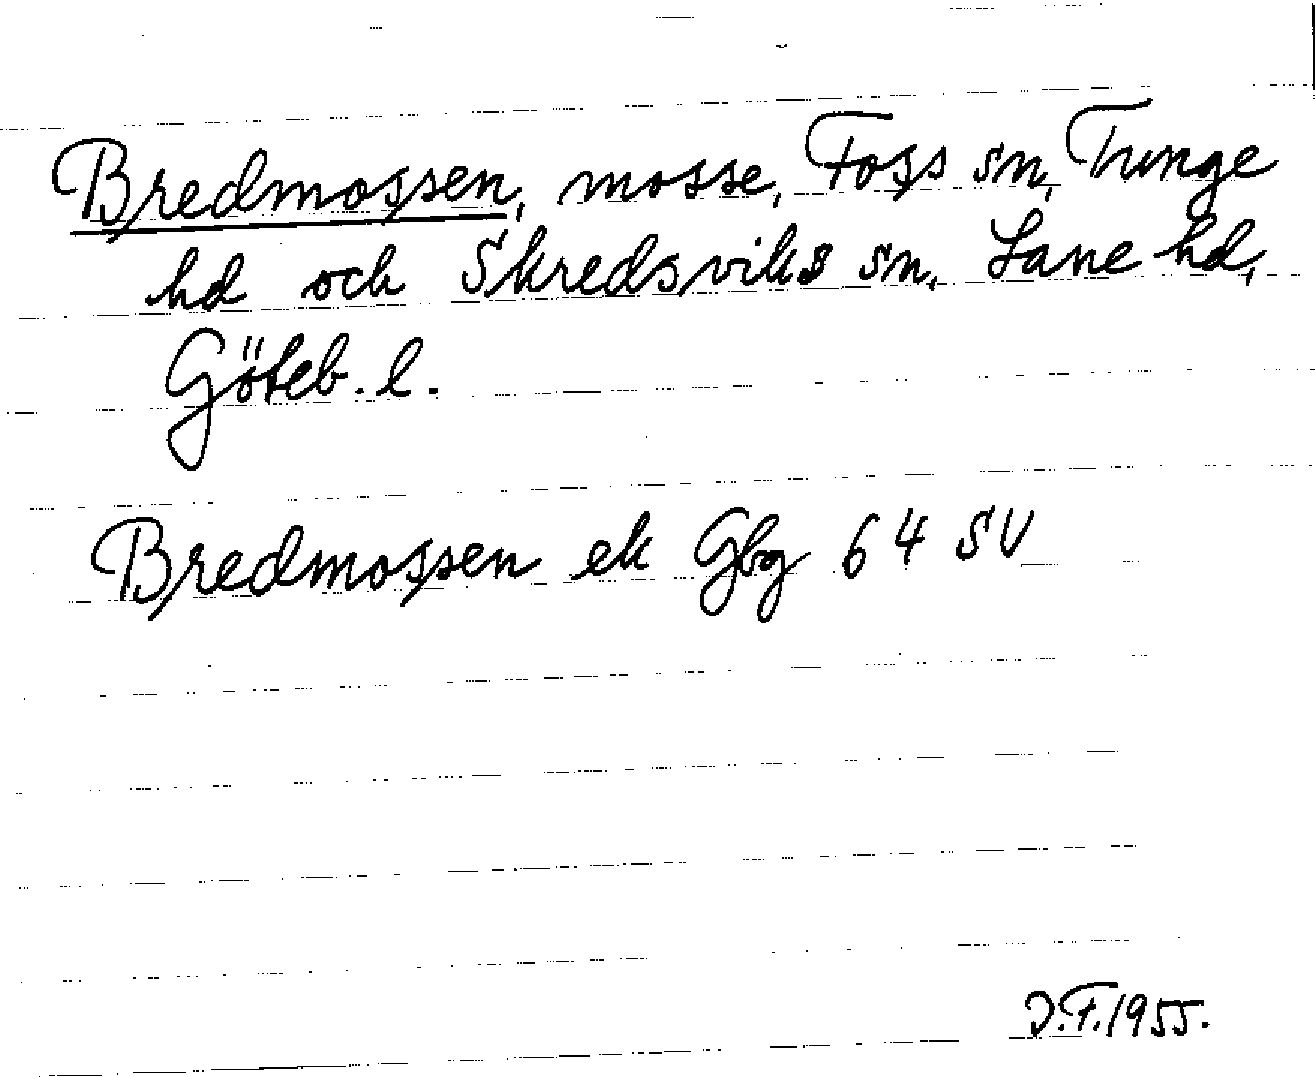 Bredmossen, mosse, Foss sn, Tunge
hd och Skredsviks sn, Lane hd,
Göteb. l.
Bredmossen ek Gbg 64 SV
J.F. 1955.